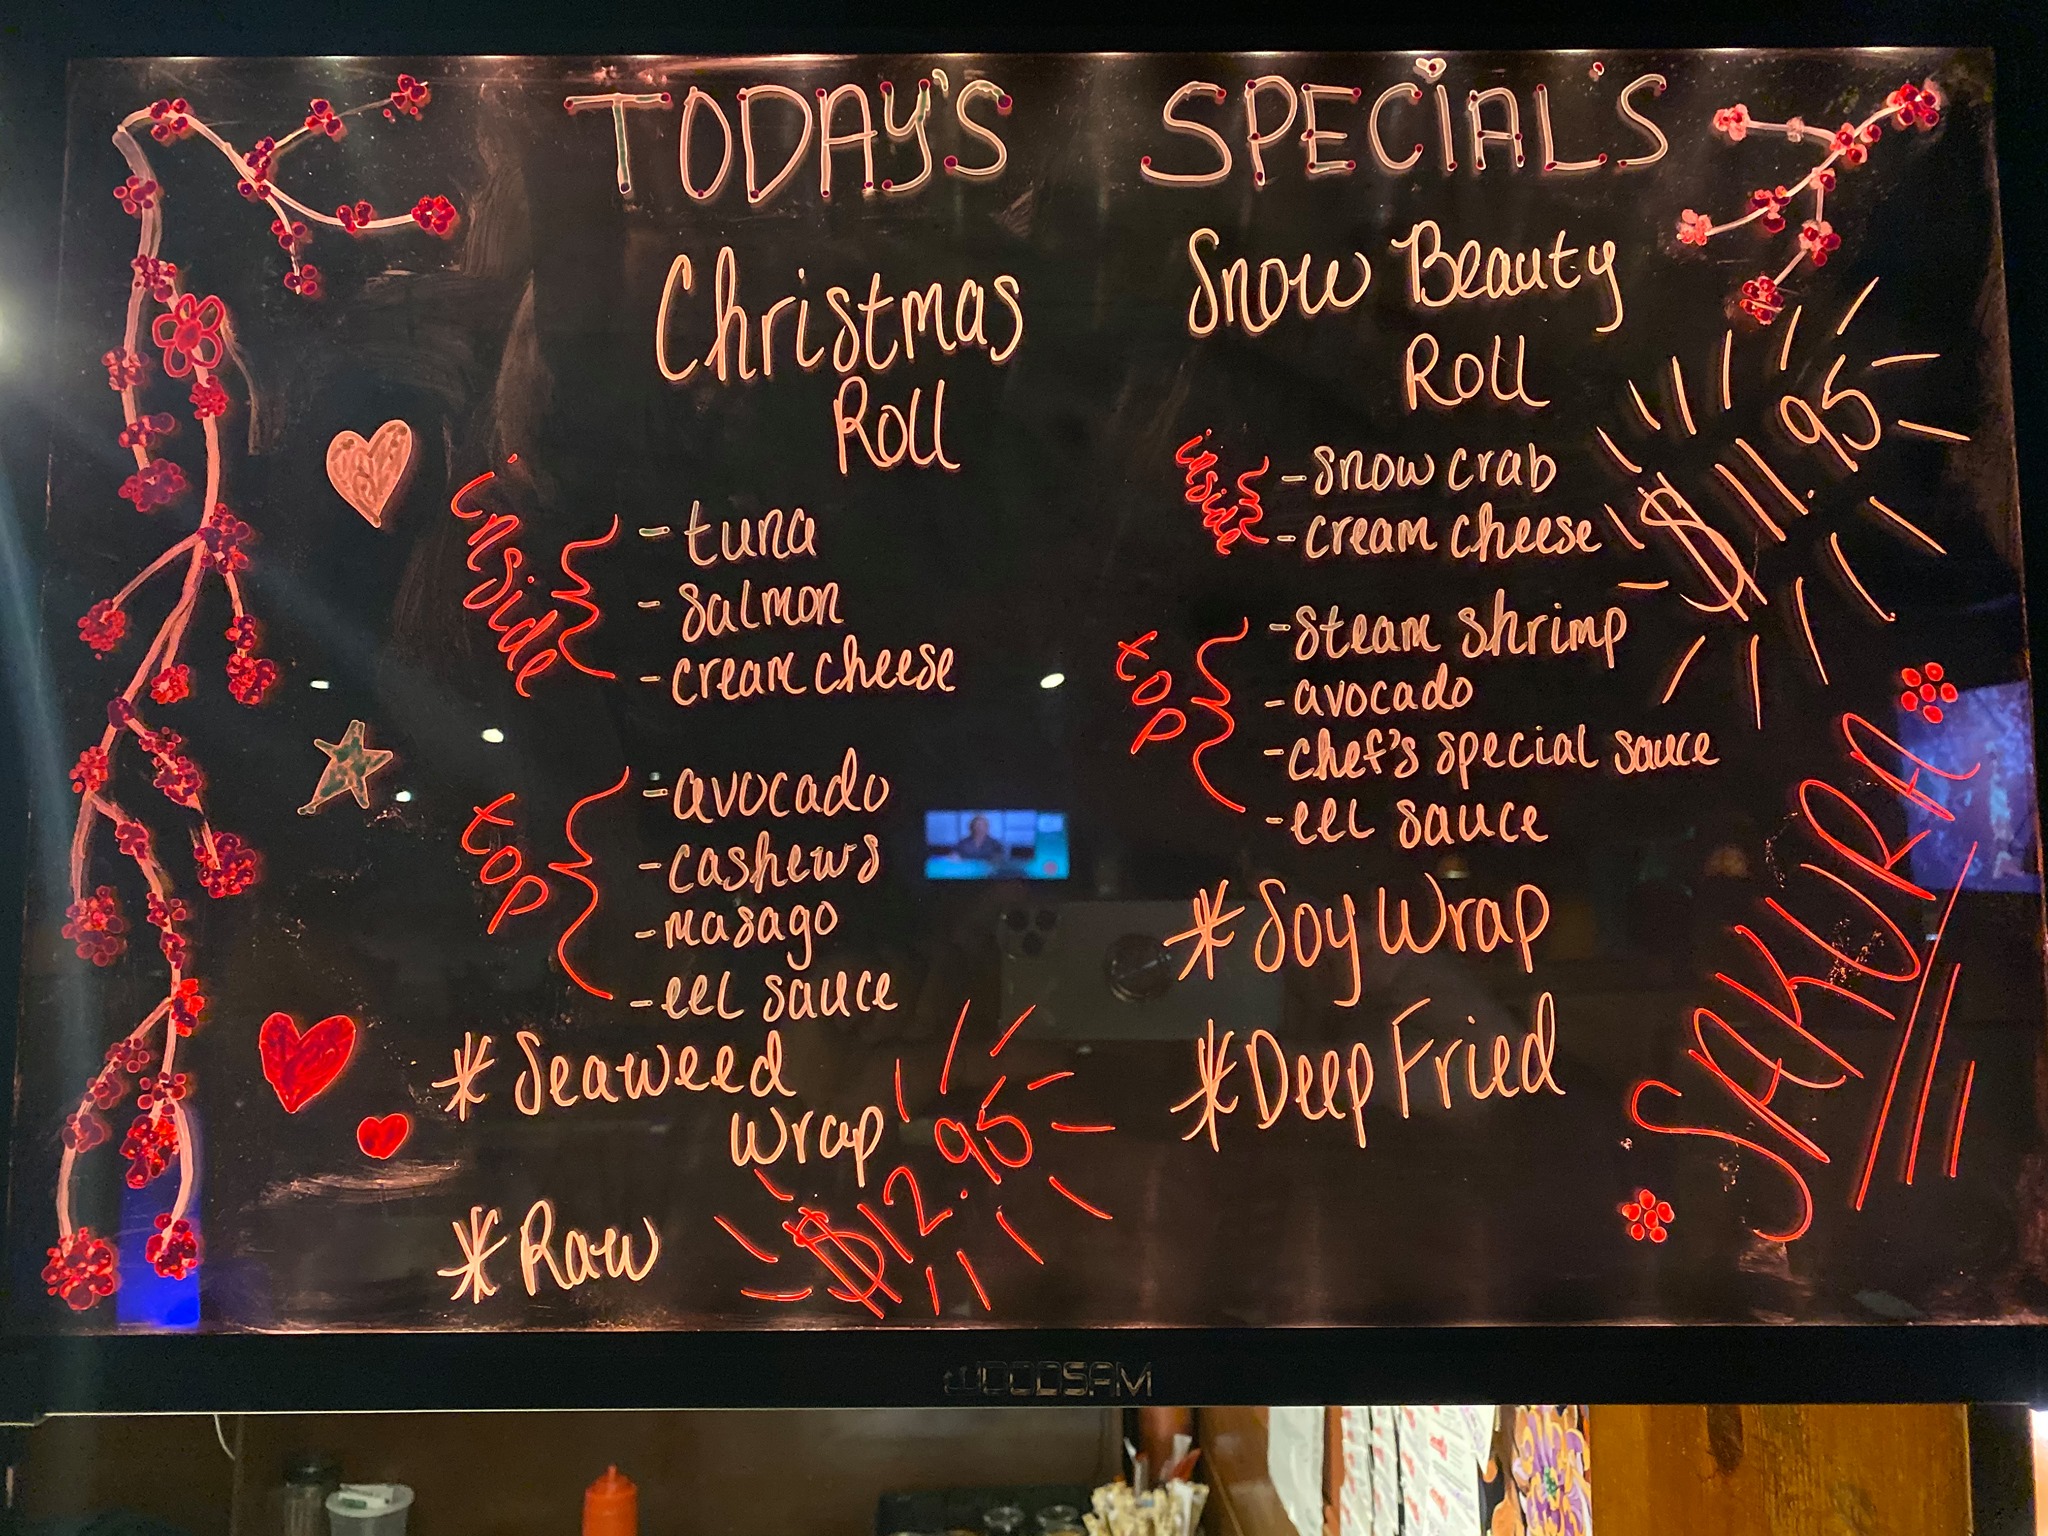 TODAY'S SPECIAL'S
Christmas
Roll
inside
- tuna
- salmon
- cream cheese
top
- avocado
- cashews
- masago
- eel sauce
* Seaweed
wrap
* Raw
$12.95
Snow Beauty
Roll
inside
- snow crab
- cream cheese
top
- steam shrimp
- avocado
- chef's special sauce
- eel sauce
* Soy Wrap
* Deep Fried
$11.95
SAKURA
WOODSAM